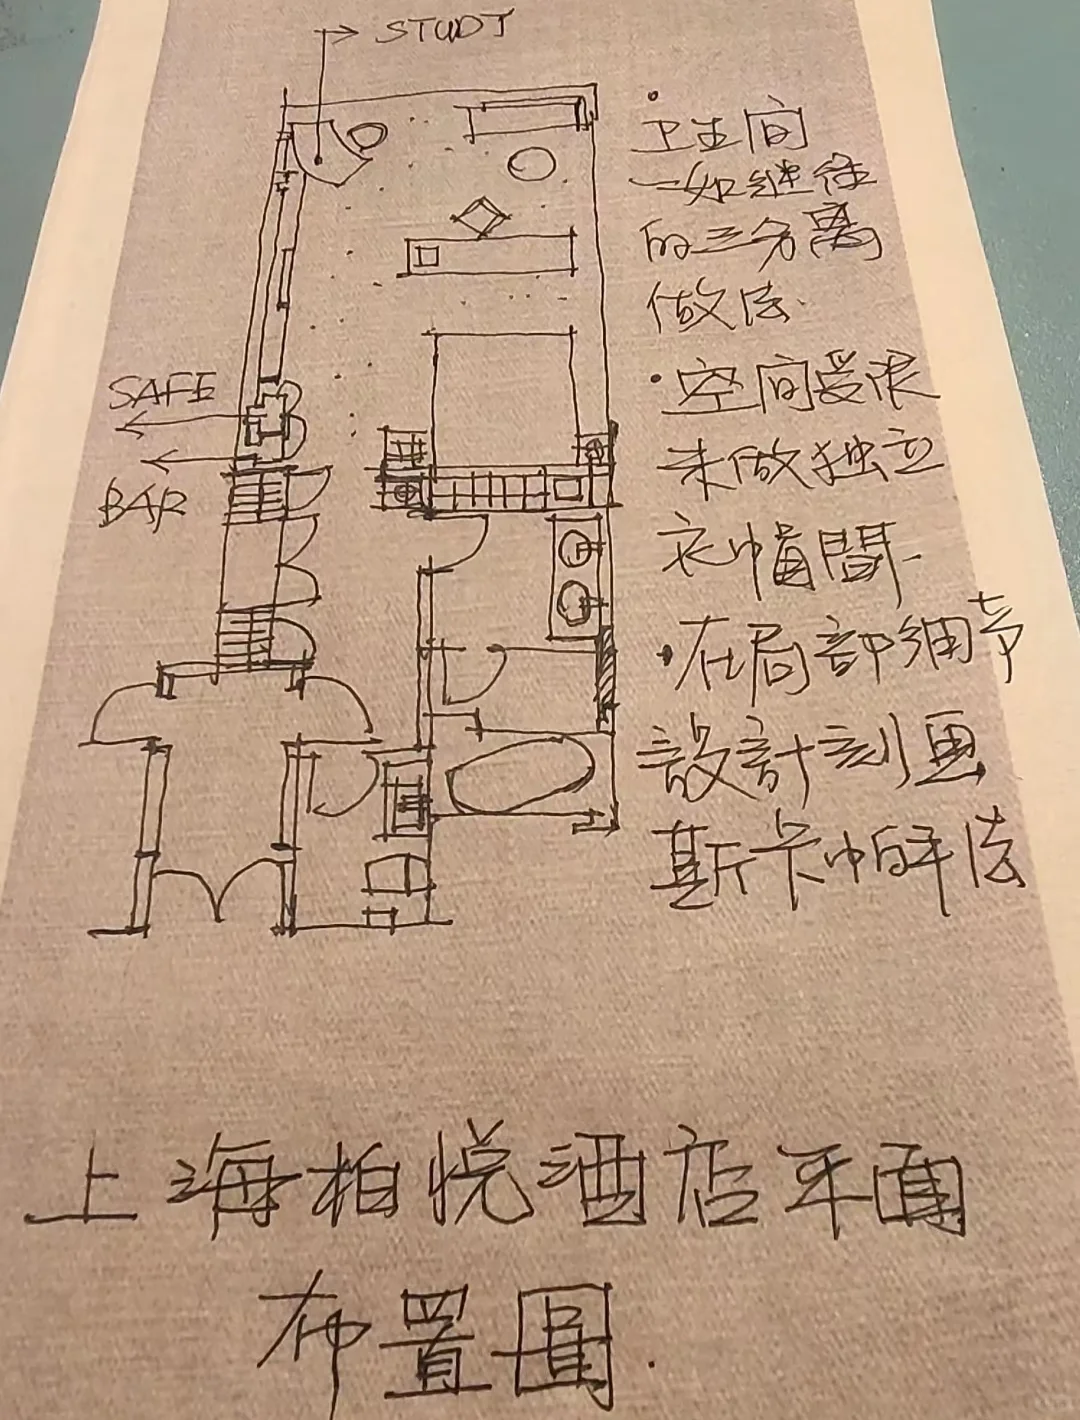 STUDY
SAFE
BAR
·卫生间
一如继往
的三分离
做法
·空间受限
未做独立
衣帽間.
·在局部细节
設計刻画
斯卡帕手法
上海柏悦酒店平面
布置圖.